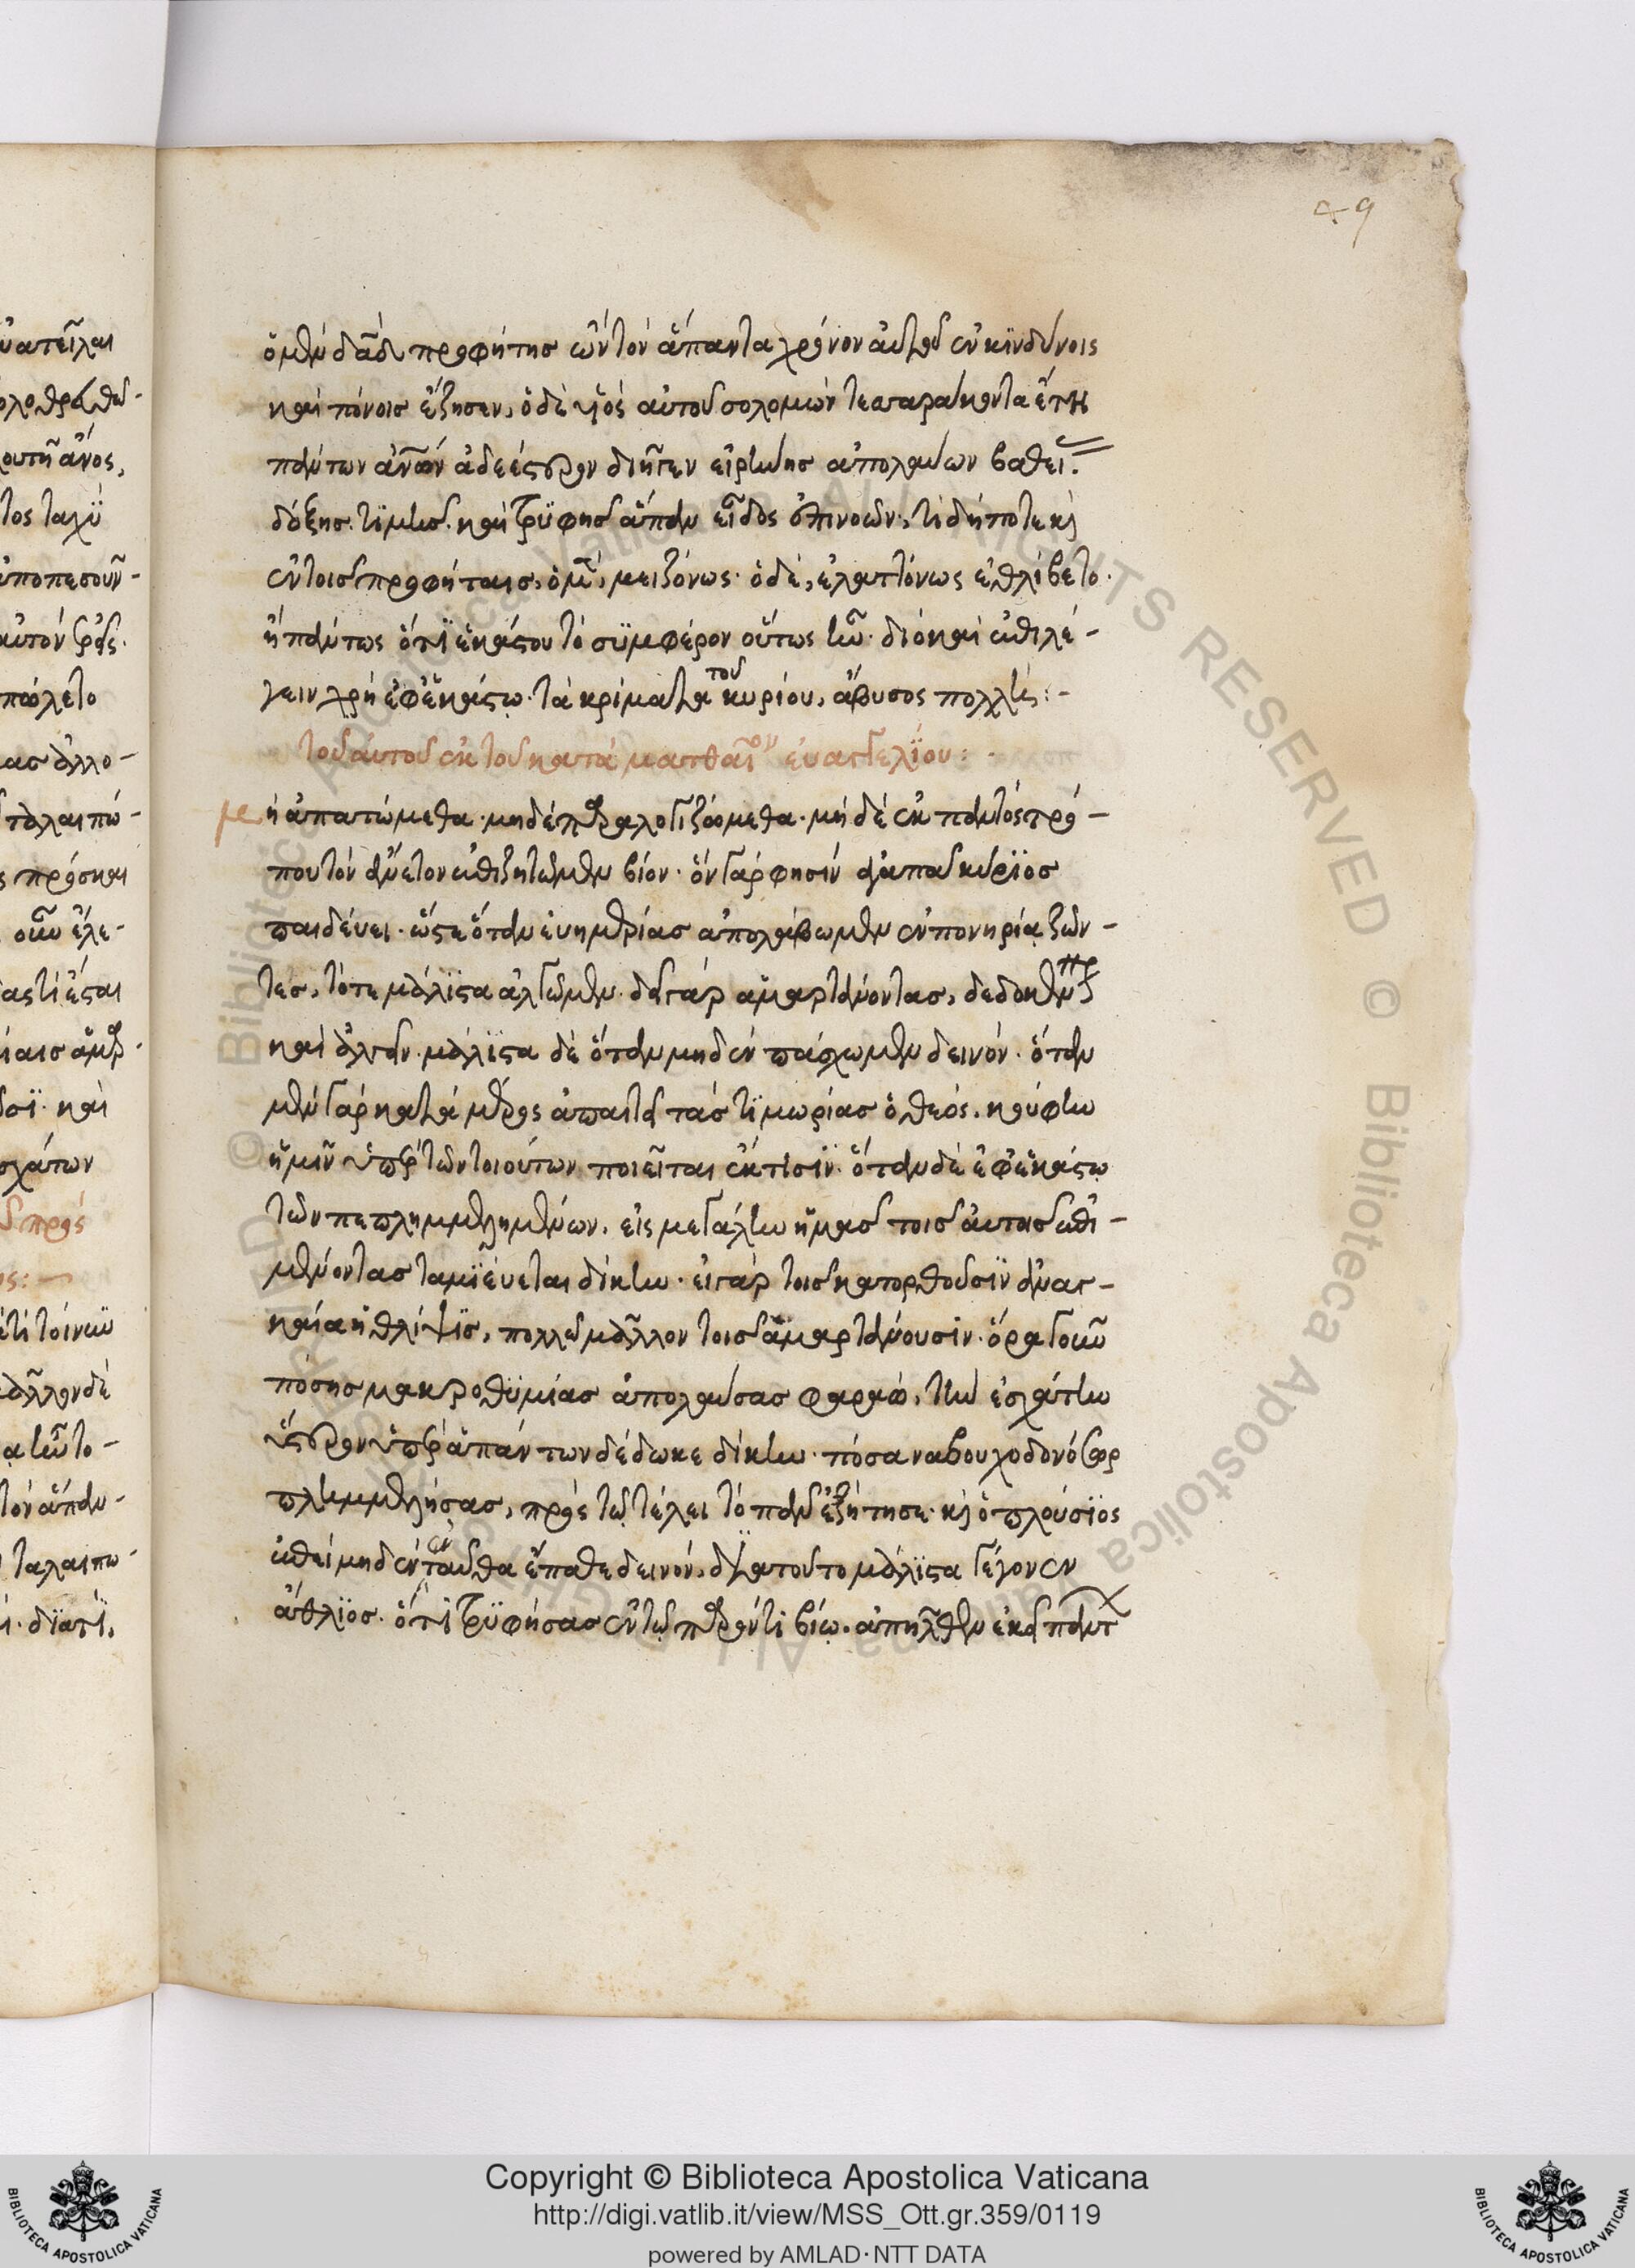 49
ὁ μὲν δα̅δ προφήτης ὢν τὸν ἅπαντα χρόνον αὐτοῦ ἐν κινδύνοις
καὶ πόνοις ἔζησεν, ὁ δὲ υἱὸς αὐτοῦ σολομὼν τεσσαράκοντα ἔτη
πάντων ἀν̅ω̅ν ἀδεέστερον διῆγεν εἰρήνης ἀπολαύων βαθεί.
δόξης. τιμῆς. καὶ τρυφῆς ἅπαν εἶδος ἐπινοῶν. τί δήποτε κ
ἐν τοῖς προφήταις, ὁ μὲν, μειζόνως. ὁ δὲ, ἐλαττόνως ἐθλίβετο.
ἢ πάντως ὅτι ἑκάστου τὸ συμφέρον οὕτως ἦν. διὸ καὶ ἐπιλέ-
γειν χρὴ ἐφ ἑκάστῳ. τὰ κρίματα τοῦ κυρίου, ἄβυσος πολλή:-
τοῦ αὐτοῦ ἐκ τοῦ κατὰ ματθαῖον εὐαγγελίου:
μὴ ἀπατώμεθα. μηδὲ παραλογιζώμεθα. μὴ δὲ ἐκ παντὸς τρό-
που τὸν ἄνετον ἐπιζητῶμεν βίον. ὃν γάρ φησιν ἀγαπᾶ κύριος
παιδεύει. ὥστε ὅταν εὐημερίας ἀπολάβωμεν ἐν πονηρία ζῶν-
τες, τότε μάλιστα ἀλγῶμεν. δεῖ γὰρ ἁμαρτάνοντας, δεδοικέν
καὶ ἀλγεῖν. μάλιστα δὲ ὅταν μηδὲν πάσχωμεν δεινόν. ὅταν
μὲν γὰρ κατὰ μέρος ἀπαιτῆ τὰς τιμωρίας ὁ θεὸς, κούφην
ἡμῖν ὑπὲρ τῶν τοιούτων ποιεῖται ἔκτισιν. ὅταν δὲ ἐφ ἑκάστῳ
τῶν πεπλημμελημένων, εἰς μεγάλην ἡμᾶς τοῖς αὐτοῖς ἐπι-
μένοντας ταμιεύεται δίκην. εἰ γὰρ τοῖς κατορθοῦσιν ἀναγ-
καία ἡ θλίψις, πολλῶ μᾶλλον τοῖς ἁμαρτάνουσιν. ὅρα γοῦν
πόσης μακροθυμίας ἀπολαύσας φαραὼ, τὴν ἐσχάτην
ὕστερον ὑπὲρ ἁπάντων δέδωκε δίκην. πόσα ναβουχοδονόσορ
πλημμελήσας, πρὸς τῶ τέλει τὸ πᾶν ἐξήτησε. κ ὁ πλούσιος
ἐπεὶ μηδὲν ἐνταῦθα ἔπαθε δεινόν, διὰ τοῦτο μάλιστα γέγονεν
ἄθλιος. ὅτι τρυφήσας ἐν τῶ παρόντι βίῳ. ἀπῆλθεν ἐκεῖ παντ
© Biblioteca Apostolica Vaticana
ALL RIGHTS RESERVED
Copyright © Biblioteca Apostolica Vaticana
http://digi.vatlib.it/view/MSS_Ott.gr.359/0119
powered by AMLAD·NTT DATA
BIBLIOTECA APOSTOLICA VATICANA
BIBLIOTECA APOSTOLICA VATICANA